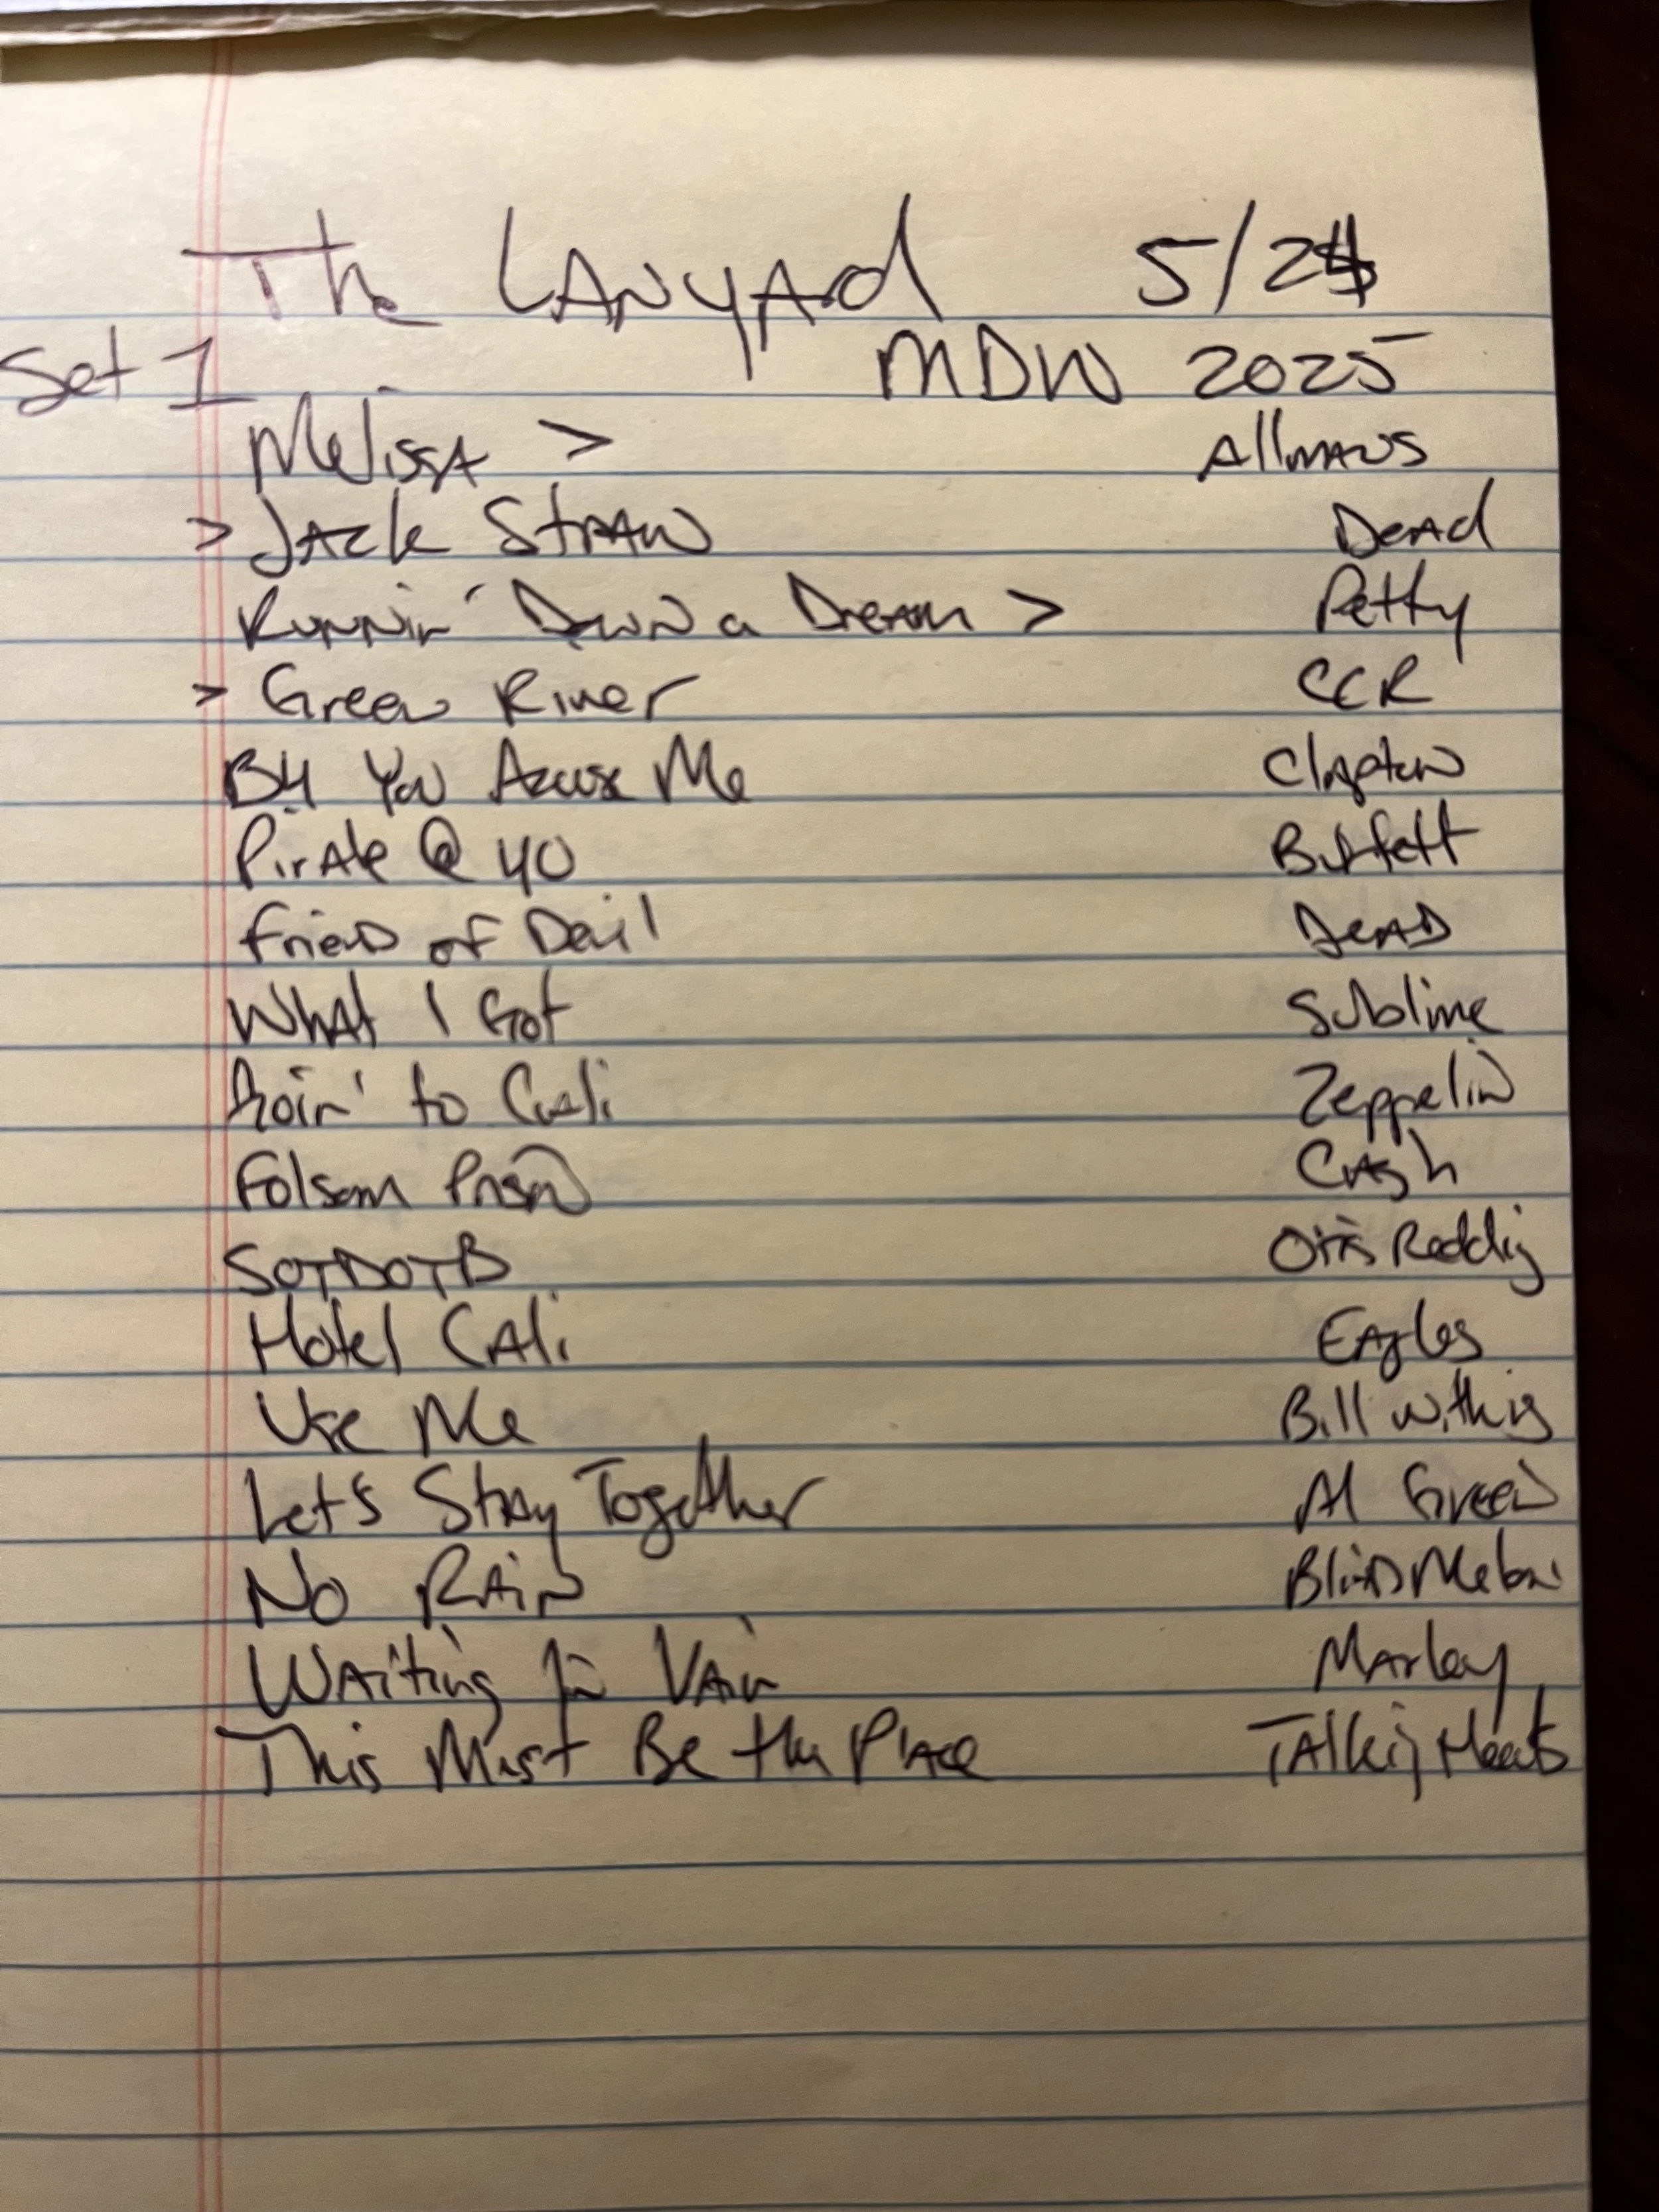 The Lanyard 5/24
Set 1 MDW 2025
Melissa > Allmans
> Jack Straw Dead
Runnin' Down a Dream > Petty
> Green River CCR
B4 You Accuse Me Clapton
Pirate @ 40 Buffett
Friend of Devil Dead
What I Got Sublime
Goin' to Cali Zeppelin
Folsom Prison Cash
SOTDOTB Otis Redding
Hotel Cali Eagles
Use Me Bill Withers
Let's Stay Together Al Green
No Rain Blind Melon
Waiting in Vain Marley
This Must Be the Place Talking Heads